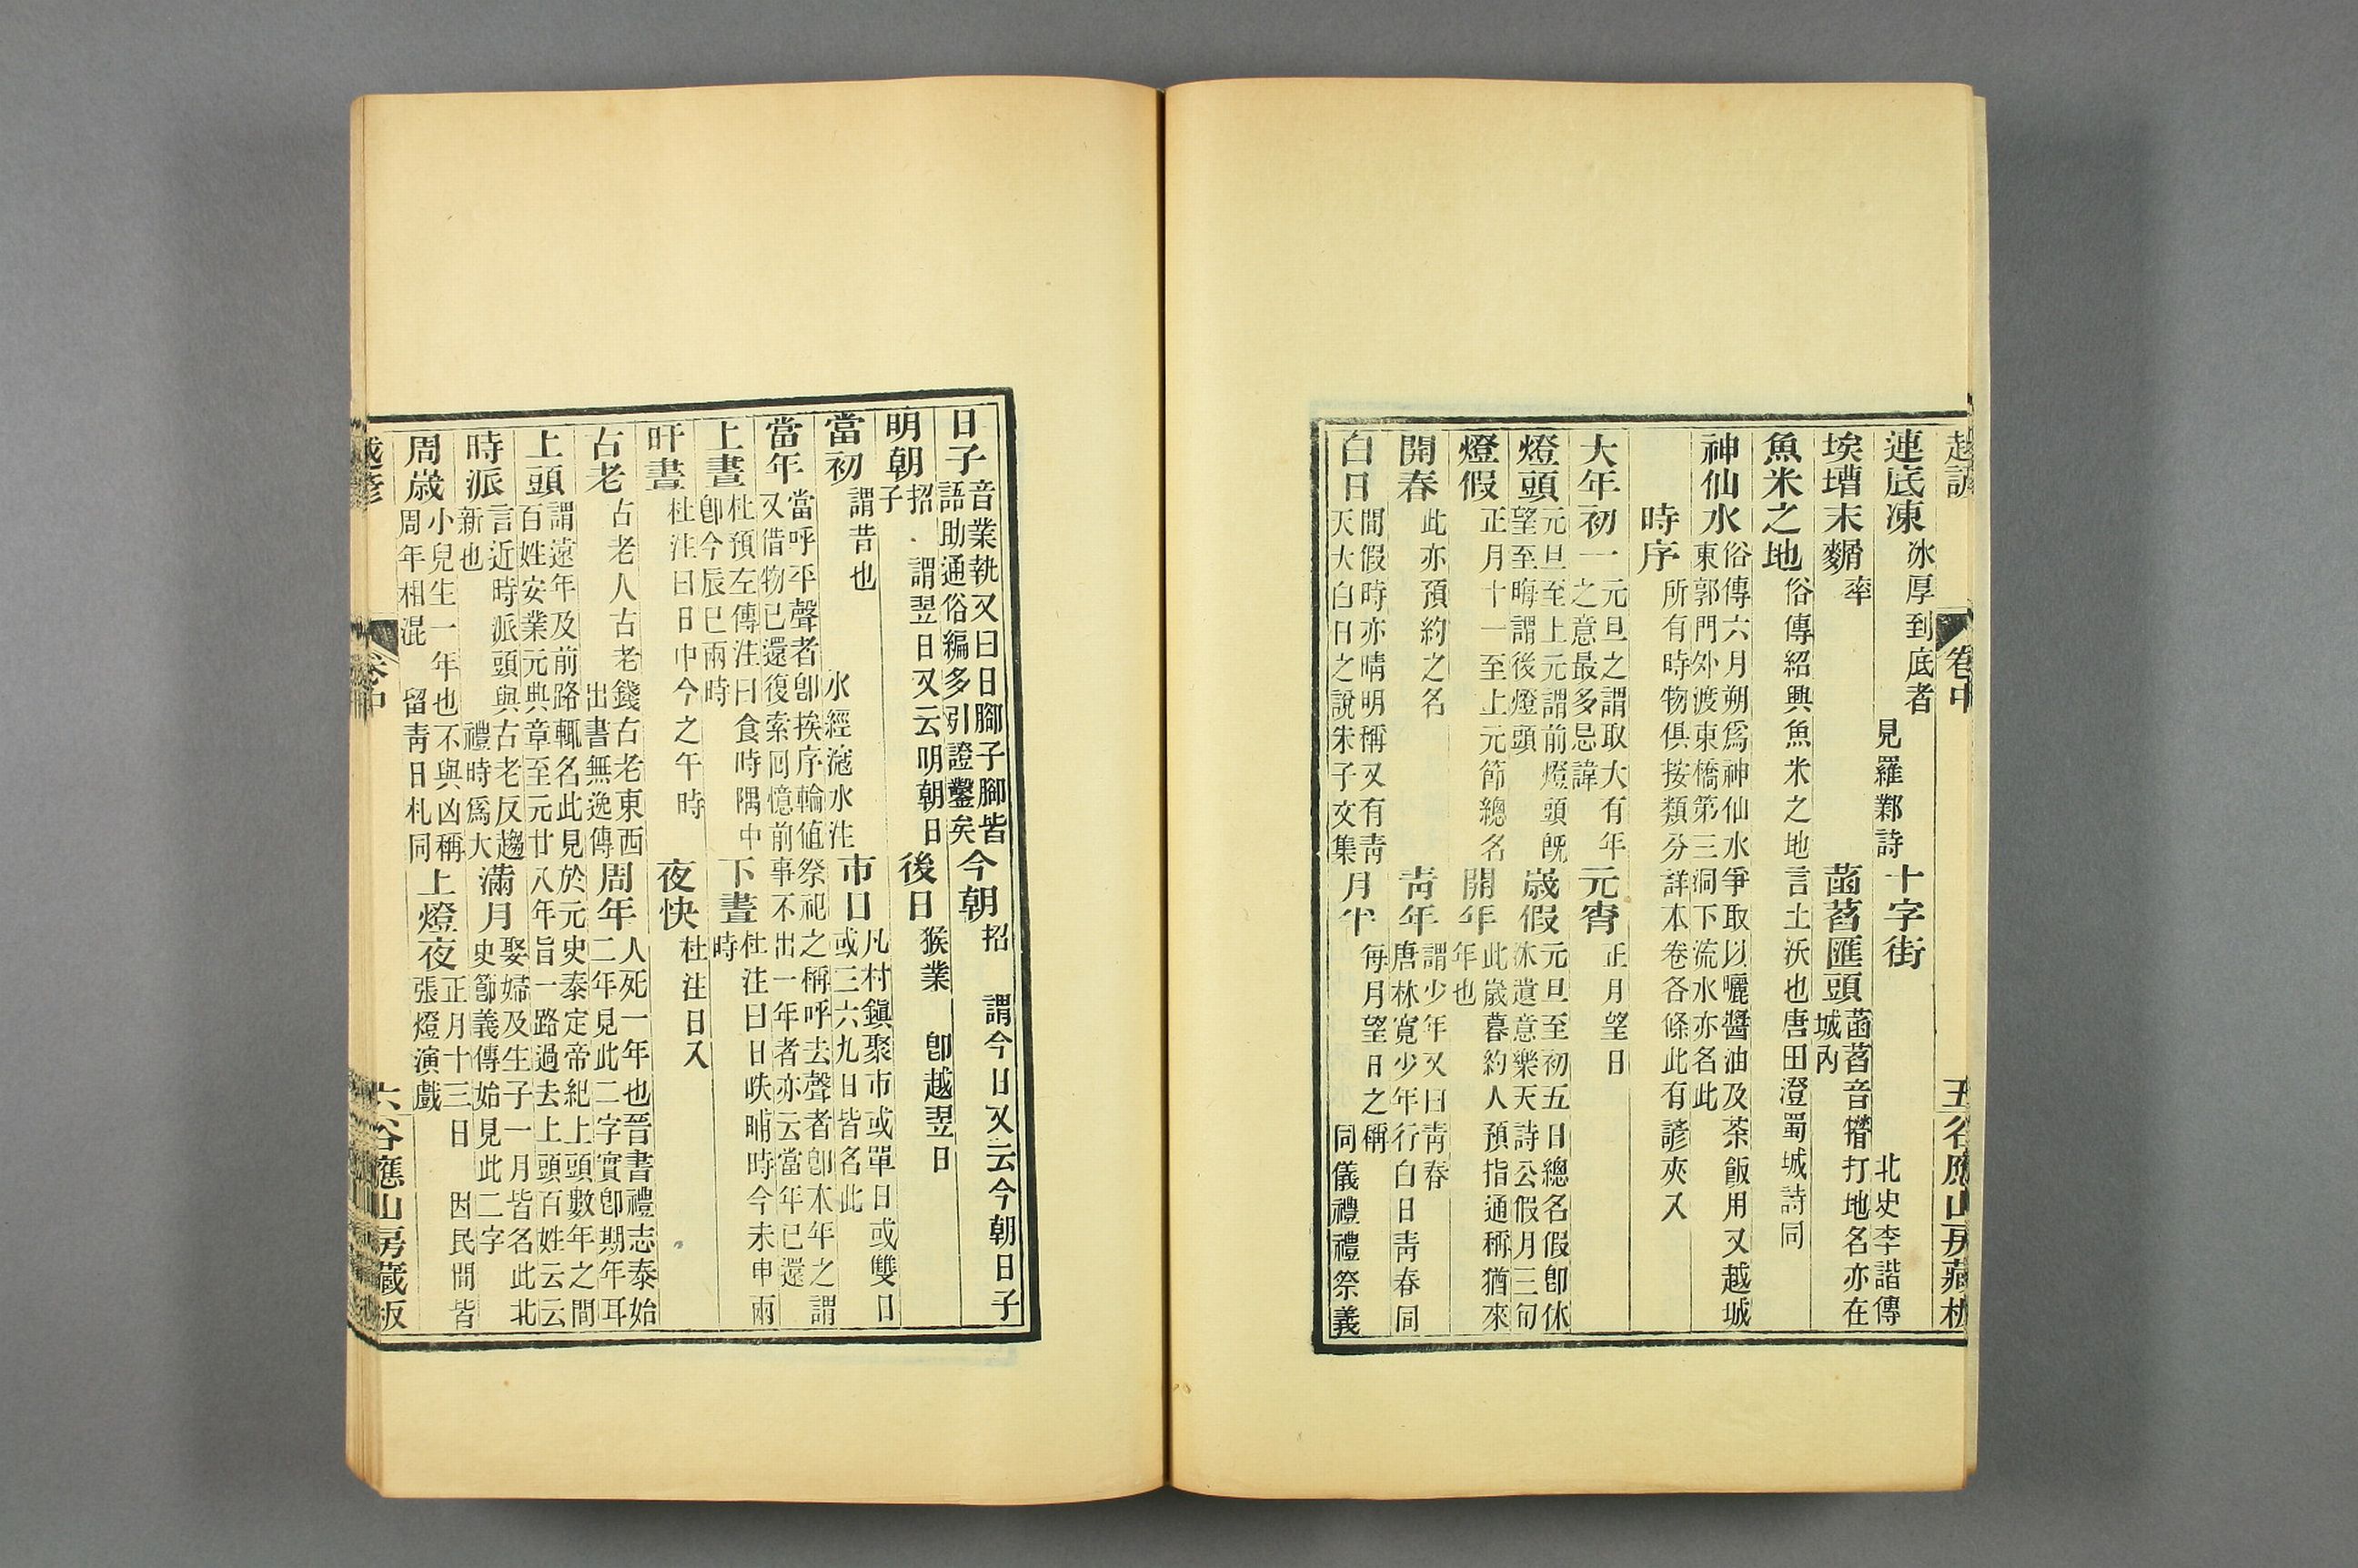 越諺 卷中 五 谷應山房藏板
連底凍 冰厚到底者見羅鄴詩 十字街 北史李諧傳
末 率 菡萏匯頭 菡萏音 打地名亦在城內
魚米之地 俗傳紹興魚米之地言土沃也唐田澄蜀城詩同
神仙水 俗傳六月朔爲神仙水爭取以曬醬油及茶飯用又越城東郭門外渡東橋第三洞下流水亦名此
時序 所有時物俱按類分詳本卷各條此有諺夾入
大年初一 元旦之謂取大有年之意最多忌諱 元宵 正月望日
燈頭 元旦至上元謂前燈頭旣望至晦謂後燈頭 歲假 元旦至初五日總名假卽休沐遺意樂天詩公假月三旬
燈假 正月十一至上元節總名 開年 此歲暮約人預指通稱猶來年也
開春 此亦預約之名 靑年 謂少年又曰靑春唐林寬少年行白日靑春同
白日 間假時亦晴明稱又有靑天大白日之說朱子文集 月半 每月望日之稱同儀禮禮祭義
日子 音業執又曰日腳子腳皆語助通俗編多引證鑿矣 今朝 招 謂今日又云今朝日子
明朝 招 謂翌日又云明朝日子 後日 猴業 卽越翌日
當初 謂昔也 水經滱水注 市日 凡村鎭聚市或單日或雙日或三六九日皆名此
當年 當呼平聲者卽挨序輪値祭祀之稱呼去聲者卽本年之謂又借物已還復索囘憶前事不出一年者亦云當年已還
上晝 杜預左傳注曰食時隅中卽今辰巳兩時 下晝 杜注曰日昳晡時今未申兩時
旰晝 杜注曰日中今之午時 夜快 杜注日入
古老 古老人古老錢古老東西出書無逸傳 周年 人死一年也晉書禮志泰始二年見此二字實卽期年耳
上頭 謂遠年及前路輒名此見於元史泰定帝紀上頭數年之間百姓安業元典章至元廿八年旨一路過去上頭百姓云云
時派 言近時派頭與古老反趨新也 禮時爲大 滿月 娶婦及生子一月皆名此北史節義傳始見此二字
周歲 小兒生一年也不與凶稱周年相混 留靑日札同 上燈夜 正月十三日 因民間皆張燈演戲
越諺 卷中 六 谷應山房藏板